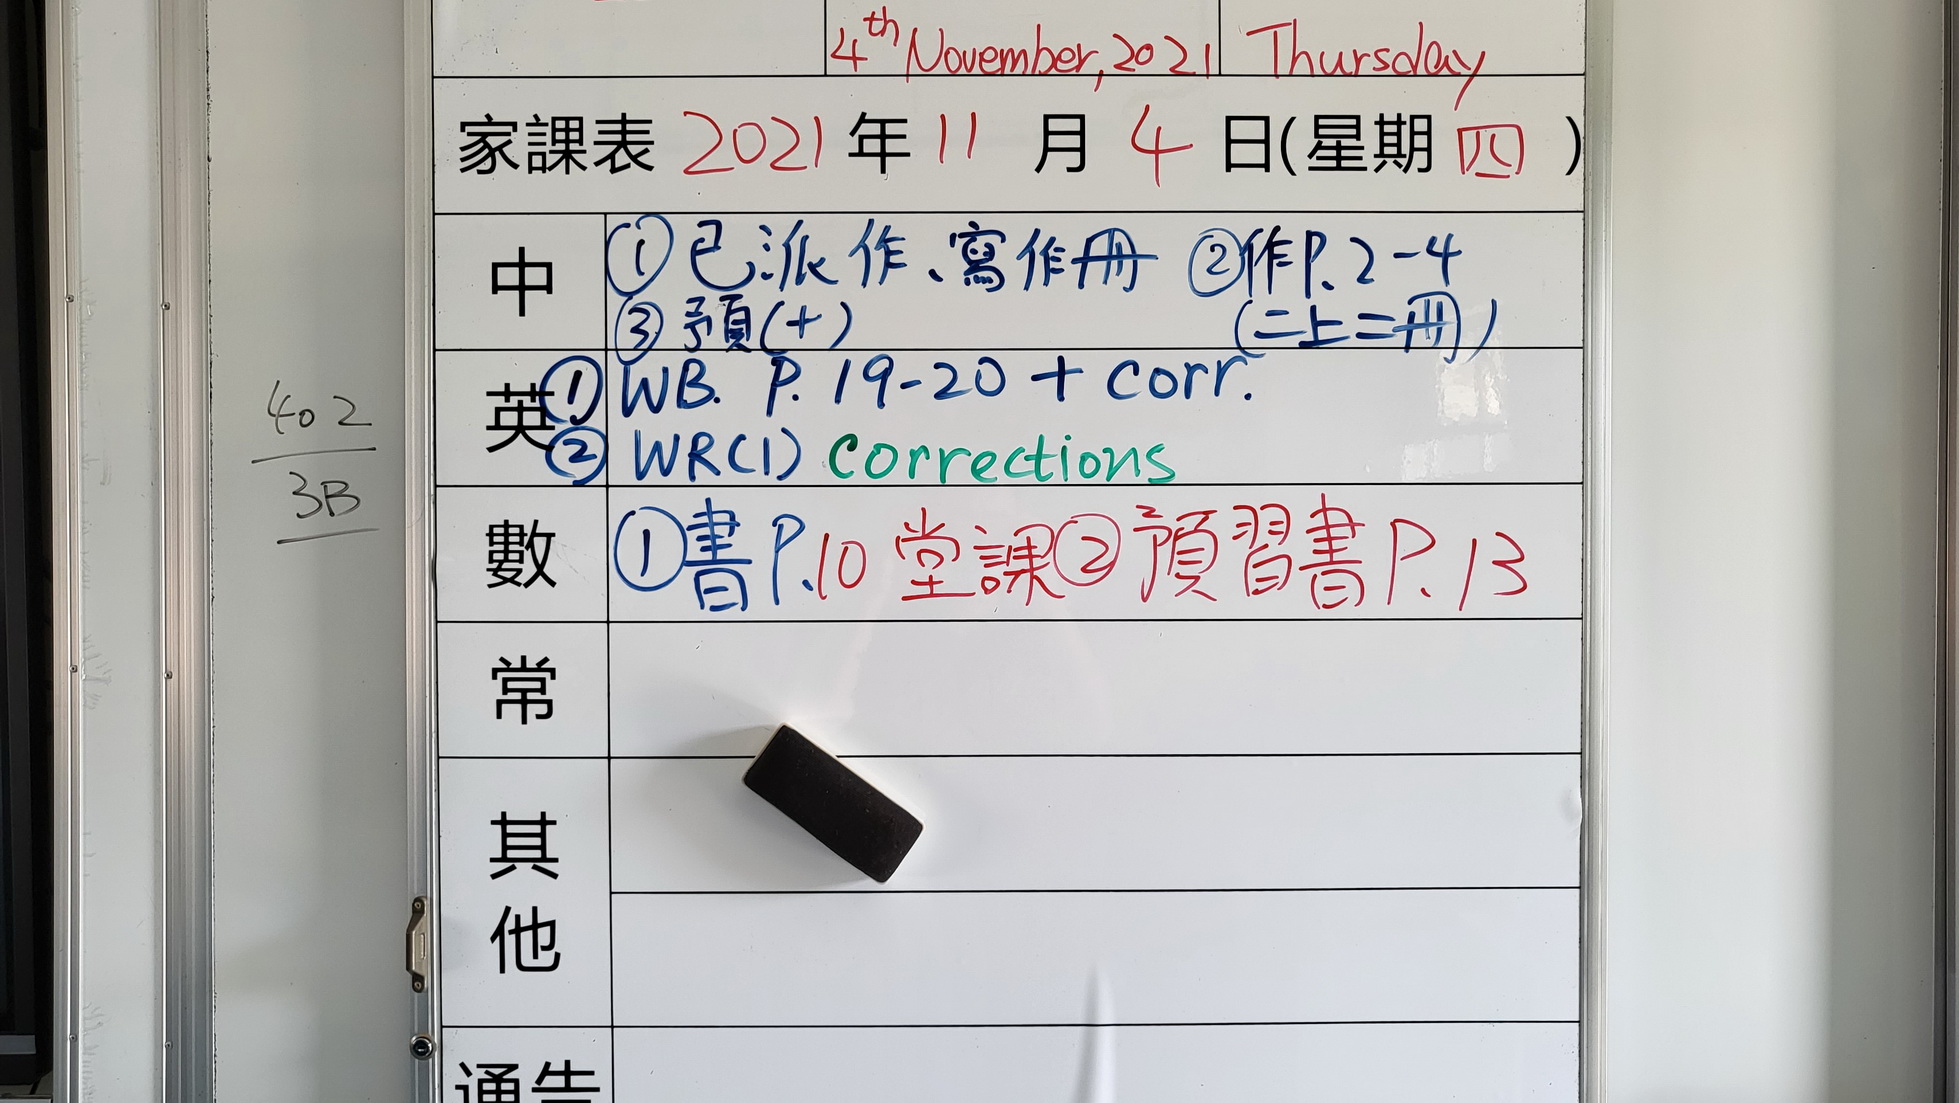 4th November, 2021 Thursday
家課表 2021 年 11 月 4 日(星期 四 )
中 ①已派作、寫作冊 ②作P.2-4
③預(十) (二上二冊)
英 ① WB. P. 19-20 + corr.
② WR(1) corrections
數 ①書P.10堂課②預習書P.13
常
其
他
通告
402
3B